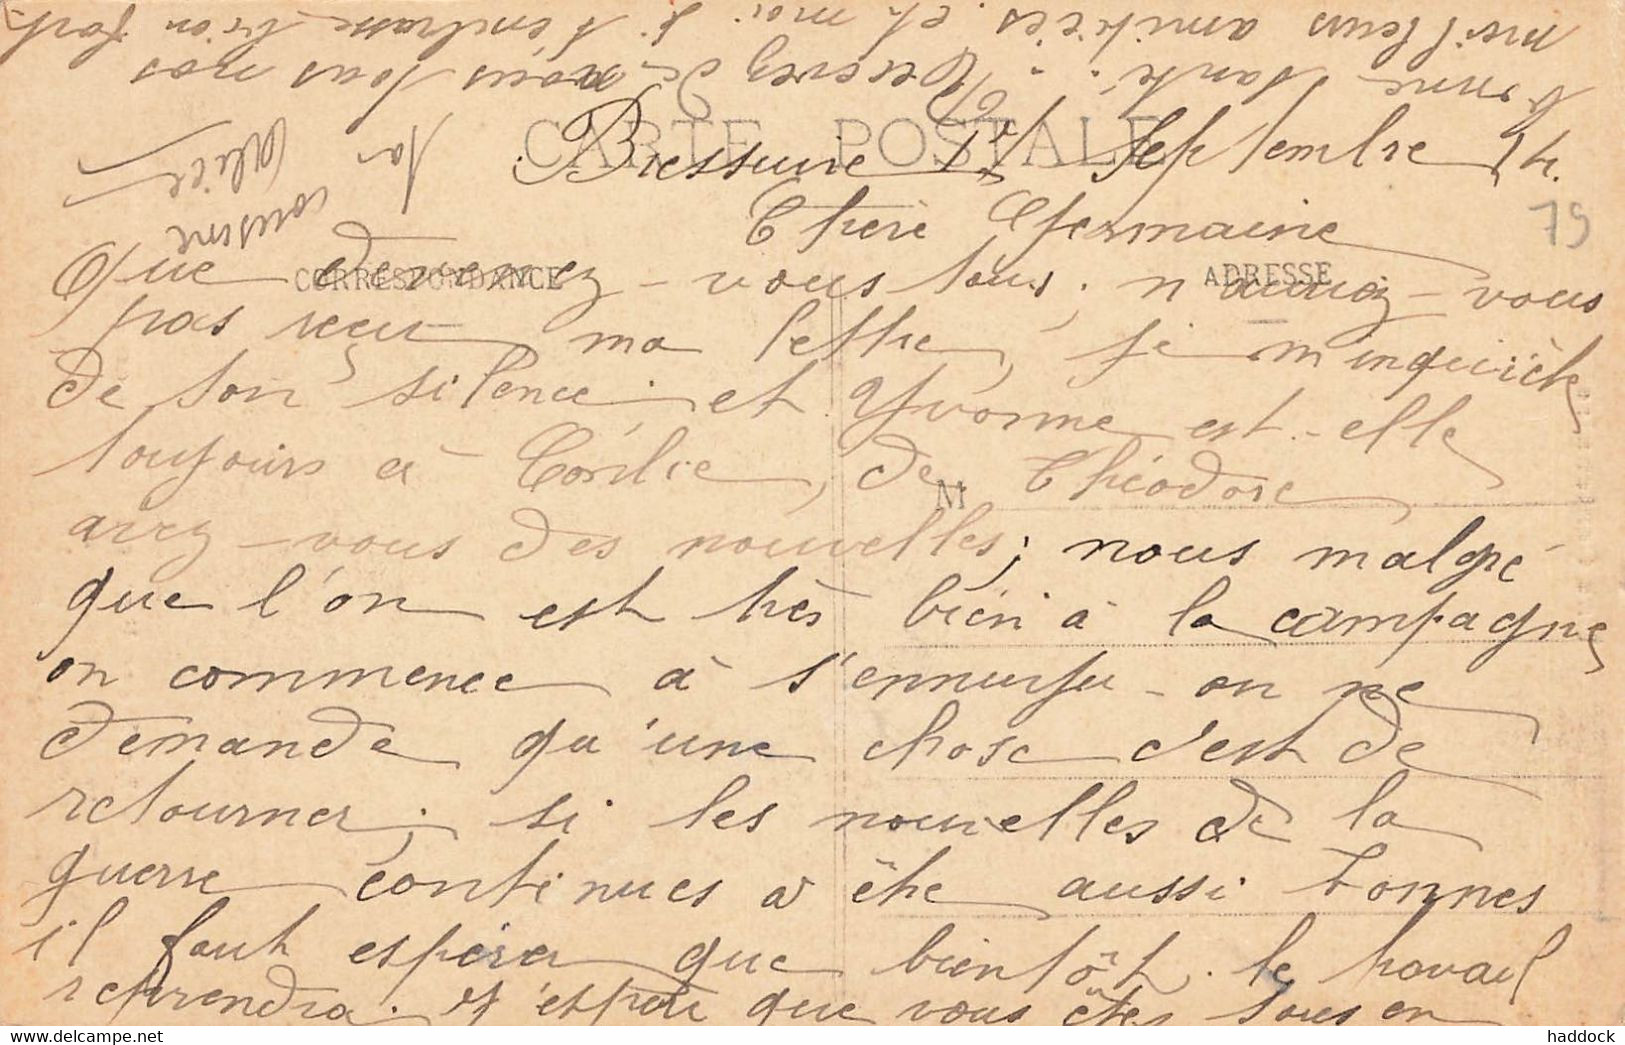 CARTE POSTALE
Bressuire 17 Septembre 14.
Chère Germaine
CORRESPONDANCE
ADRESSE
79
Que devenez-vous tous, n'auriez-vous
pas reçu ma lettre, je m'inquiète
de ton silence; et Yvonne est-elle
toujours à, de Théodore
M
avez-vous des nouvelles; nous malgré
que l'on est très bien à la campagne
on commence à s'ennuyer on ne
demande qu'une chose c'est de
retourner; si les nouvelles de la
guerre continues a être aussi bonnes
il faut espérer que bientôt le travail
reprendra. J'espère que vous êtes tous en
bonne santé. Recevez de nous tous nos
meilleurs amitiés et moi je t'embrasse bien fort.
ta
cousine
Alice
haddock